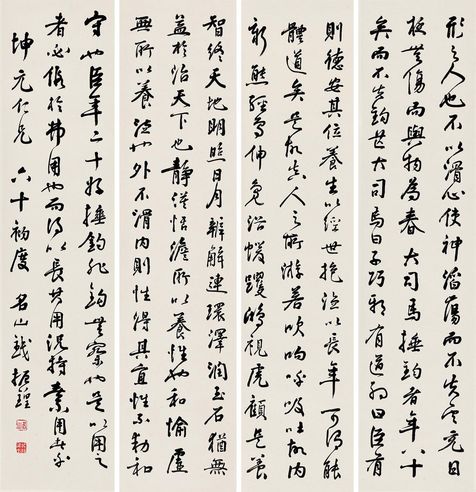 形之人也不以滑心使神滔蕩而不失其充日
夜無傷而與物為春 大司馬捶鈎者年八十
矣而不失鈎芒大司馬曰子巧耶有道耶曰臣有
則德安其位養生以經世抱德以長年可謂能
體道矣是故真人之所游若吹呴呼吸吐故內
新熊經鳥伸鳧浴蝯躩鴟視虎顧是養
智終天地明照日月辯解連環澤潤玉石猶無
益於治天下也靜漠恬澹所以養性也和愉虛
無所以養德也外不滑內則性得其宜性不動和
守也臣年二十好捶鈎非鈎無察也是以用之
者必假於弗用也而得以長其用況持用者乎
坤元仁兄 六十初度 名山錢振鍠